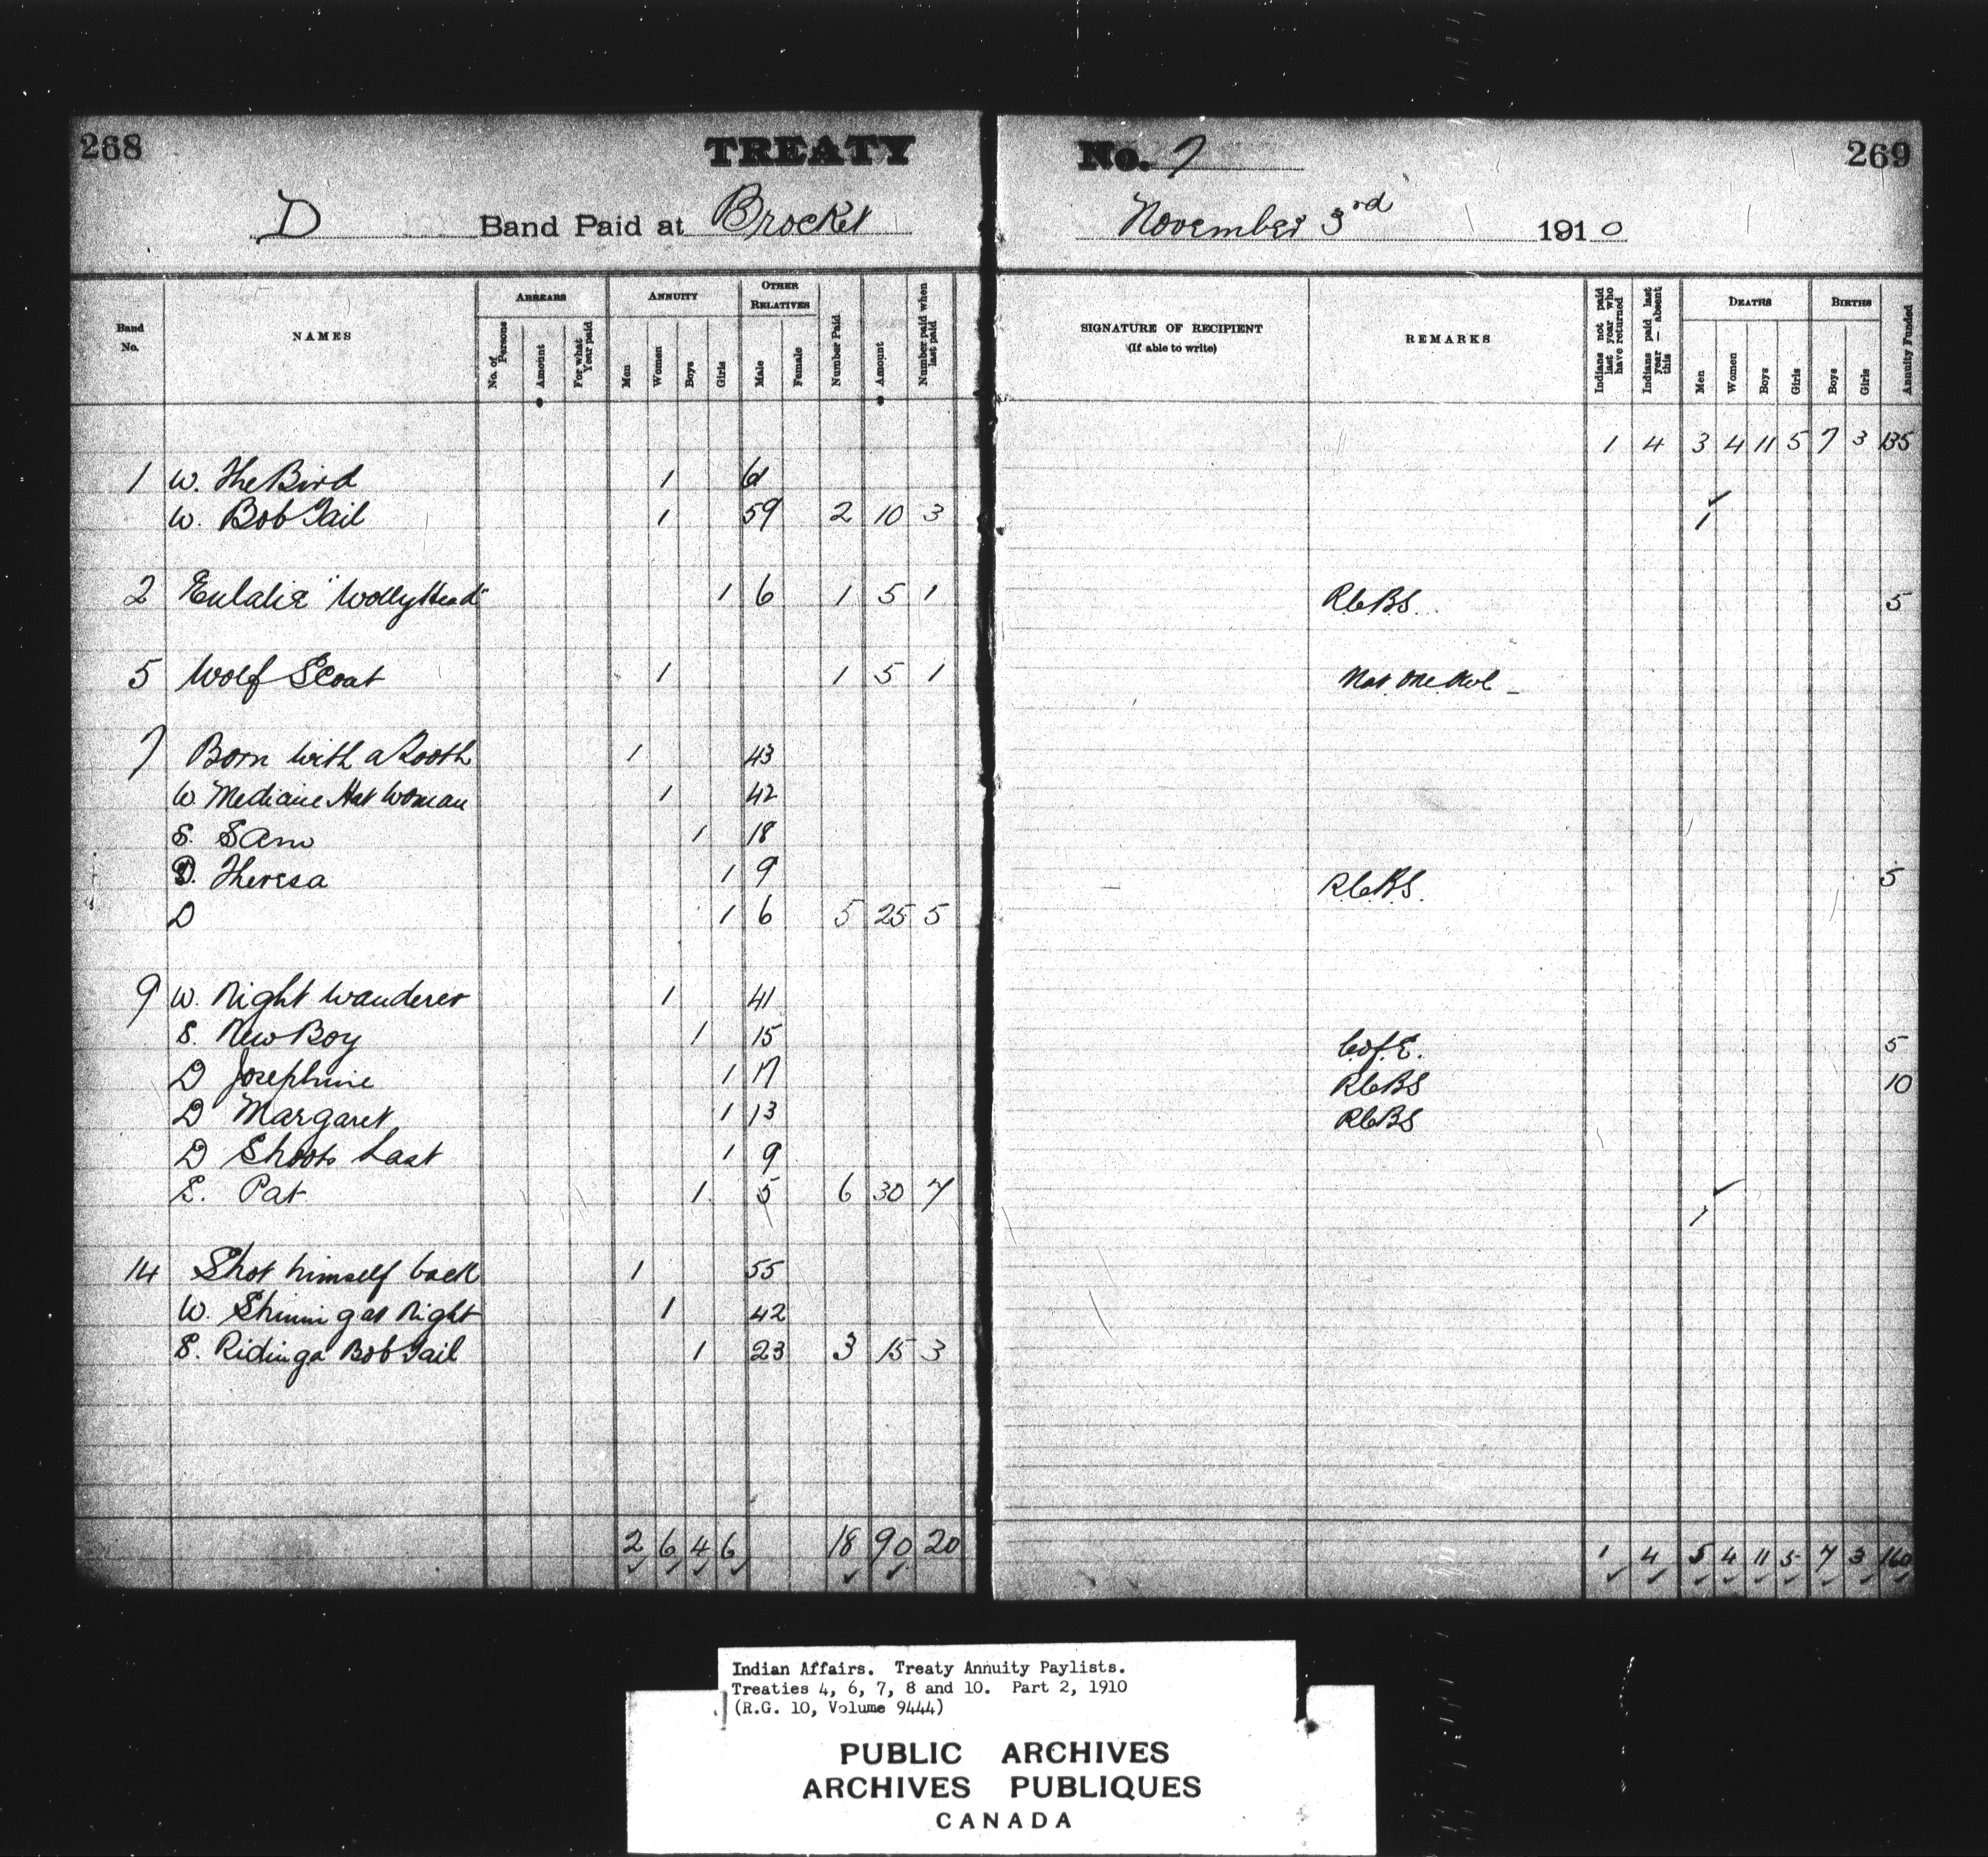 268 TREATY No. 7 269
D Band Paid at Brocket November 3rd 1910
Band No. NAMES ARREARS No. of Persons Amount For what Year paid ANNUITY Men Women Boys Girls OTHER RELATIVES Male Female Number Paid Amount Number paid when last paid SIGNATURE OF RECIPIENT (If able to write) REMARKS Indians not paid last year who have returned Indians paid last year — absent this DEATHS Men Women Boys Girls BIRTHS Boys Girls Annuity Funded
1 4 3 4 11 5 7 3 135
1 W. The Bird 1
W. Bob Tail 1 59 2 10 3 1
2 Eulalia "Wolly Head" 1 6 1 5 1 R.C.B.S. 5
5 Wolf Scoat 1 1 5 1
7 Born with a Tooth 1 43
W. Medicine Hat Woman 1 42
S. Sam 1 18
D. Theresa 1 9 R.C.B.S. 5
D 1 6 5 25 5
9 W. Night Wanderer 1 41
S. New Boy 1 15 C. of E. 5
D Josephine 1 17 RCBS 10
D Margaret 1 13 RCBS
D Shoots Last 1 9
S. Pat 1 5 6 30 7 1
14 Shot himself back 1 55
W. Shining at Night 1 42
S. Riding a Bob Tail 1 23 3 15 3
2 6 4 6 18 90 20 1 4 5 4 11 5 7 3 160
Indian Affairs. Treaty Annuity Paylists.
Treaties 4, 6, 7, 8 and 10. Part 2, 1910
(R.G. 10, Volume 9444)
PUBLIC ARCHIVES
ARCHIVES PUBLIQUES
CANADA